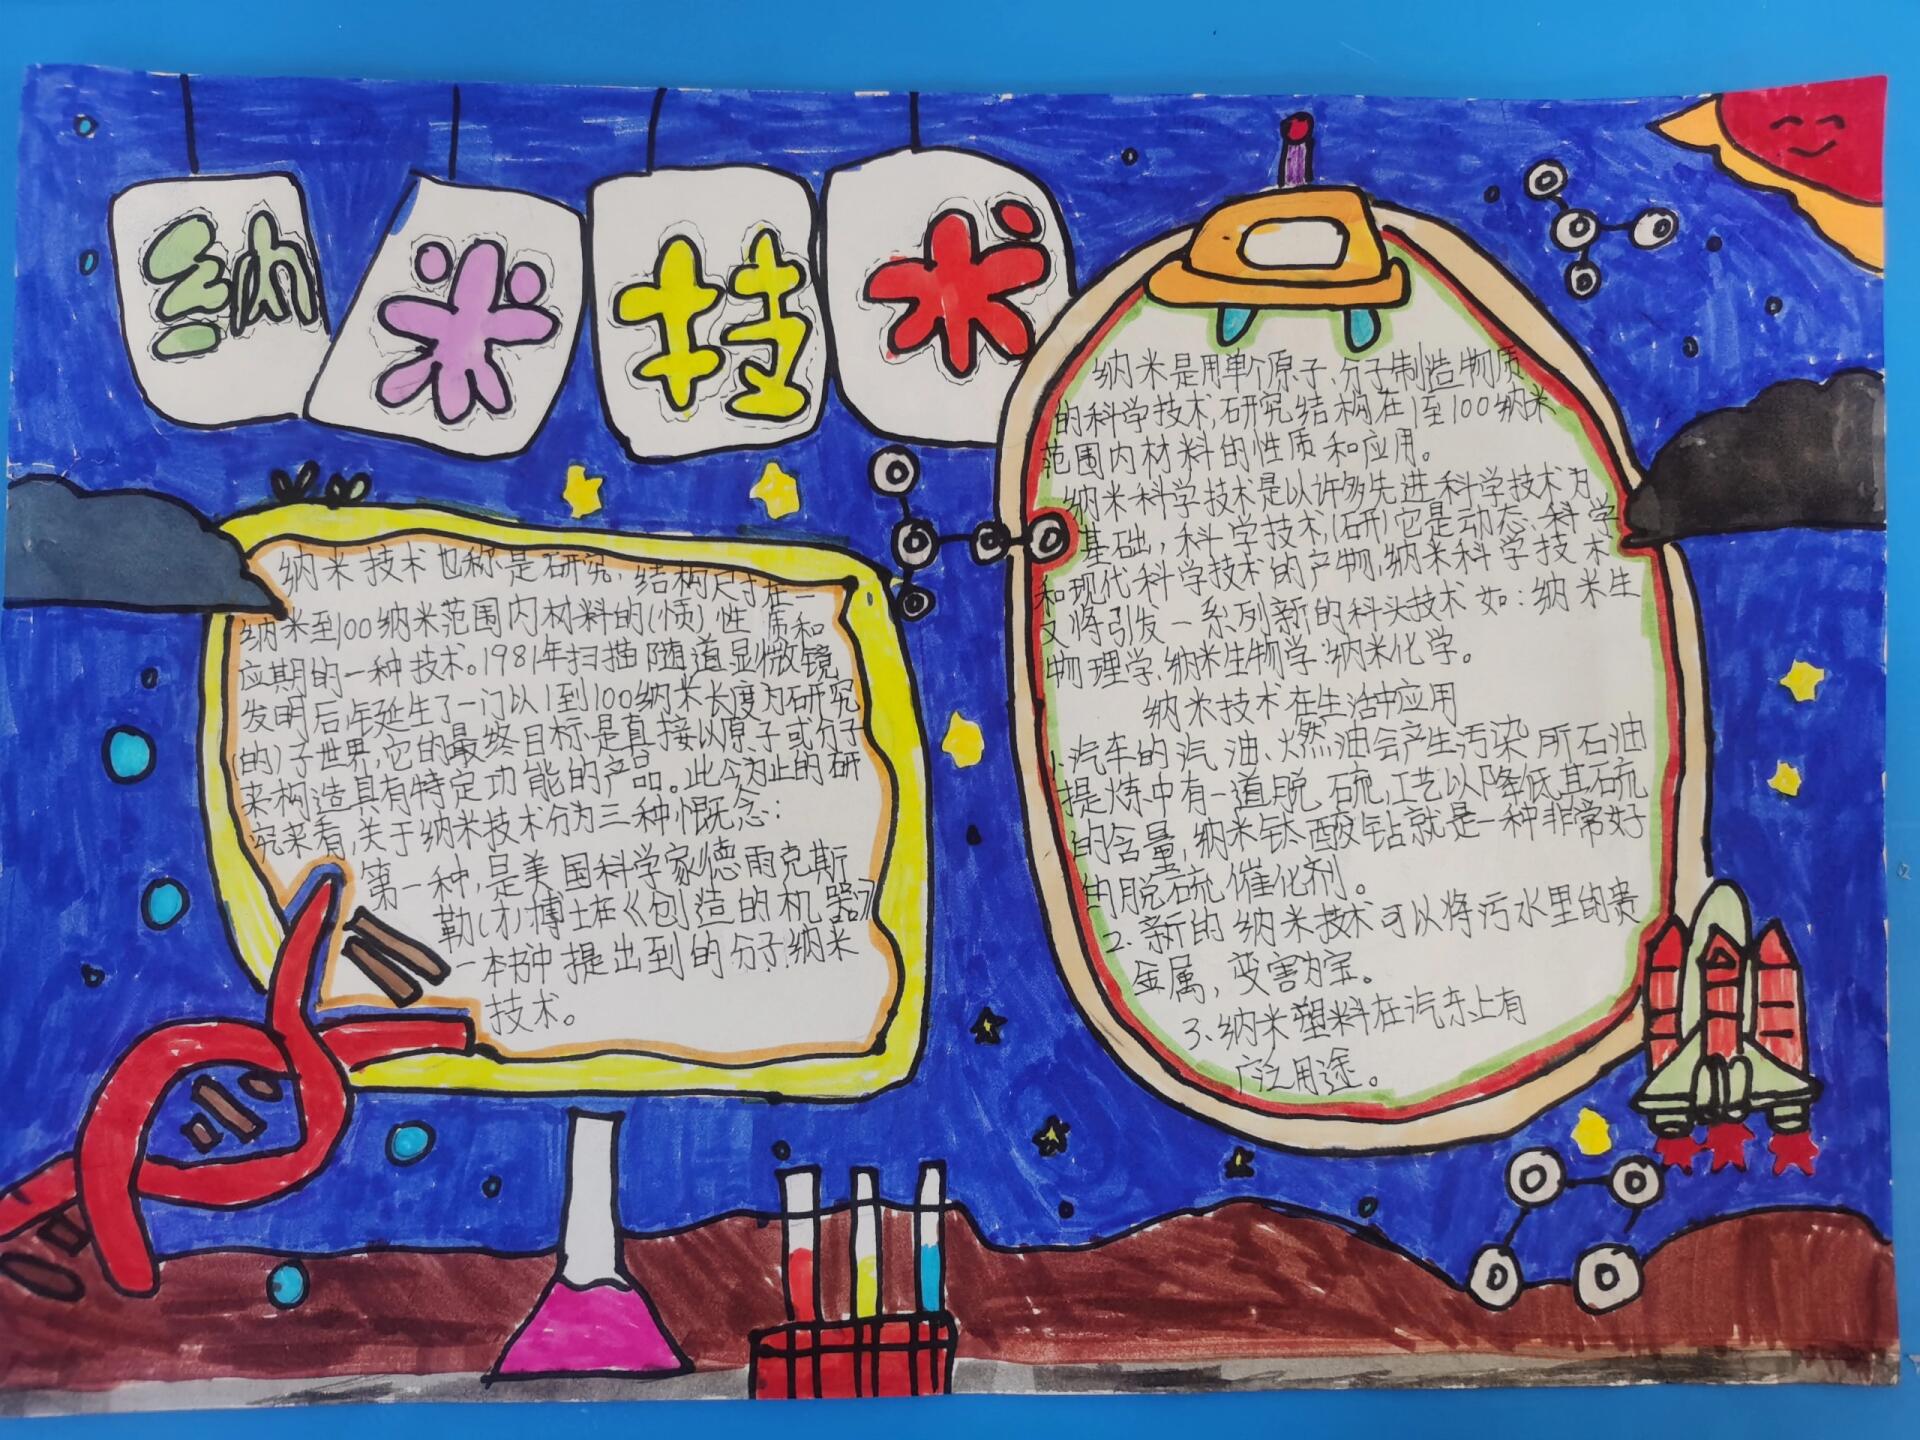 纳米技术
纳米技术也称是研究,结构尺寸在一
纳米到100纳米范围内材料的(愤)性质和
应期的一种技术。1981年扫描隧道显微镜
发明后,延生了一门以1到100纳米长度为研究
的)子世界,它的最终目标是直接以原子或分子
来构造具有特定功能的产品。此今为止的研
究来看,关于纳米技术分为三种慨念:
第一种,是美国科学家德雨克斯
勒(才)博士在《创造的机器》
一本书中提出到的分子纳米
技术。
纳米是用单个原子、分子制造物质
的科学技术,研究结构在1至100纳米
范围内材料的性质和应用。
纳米科学技术是以许多先进科学技术为
基础,科学技术(研)它是动态科学
和现代科学技术的产物,纳米科学技术
又将引发一系列新的科头技术如:纳米生
物理学、纳米生物学、纳米化学。
纳米技术在生活中应用
1.汽车的汽油、燃油会产生污染所石油
提炼中有一道脱硫工艺以降低其硫
的含量,纳米钛酸钴就是一种非常好
的脱硫催化剂。
2.新的纳米技术可以将污水里的贵
金属,变害为宝。
3.纳米塑料在汽东上有
广泛用途。